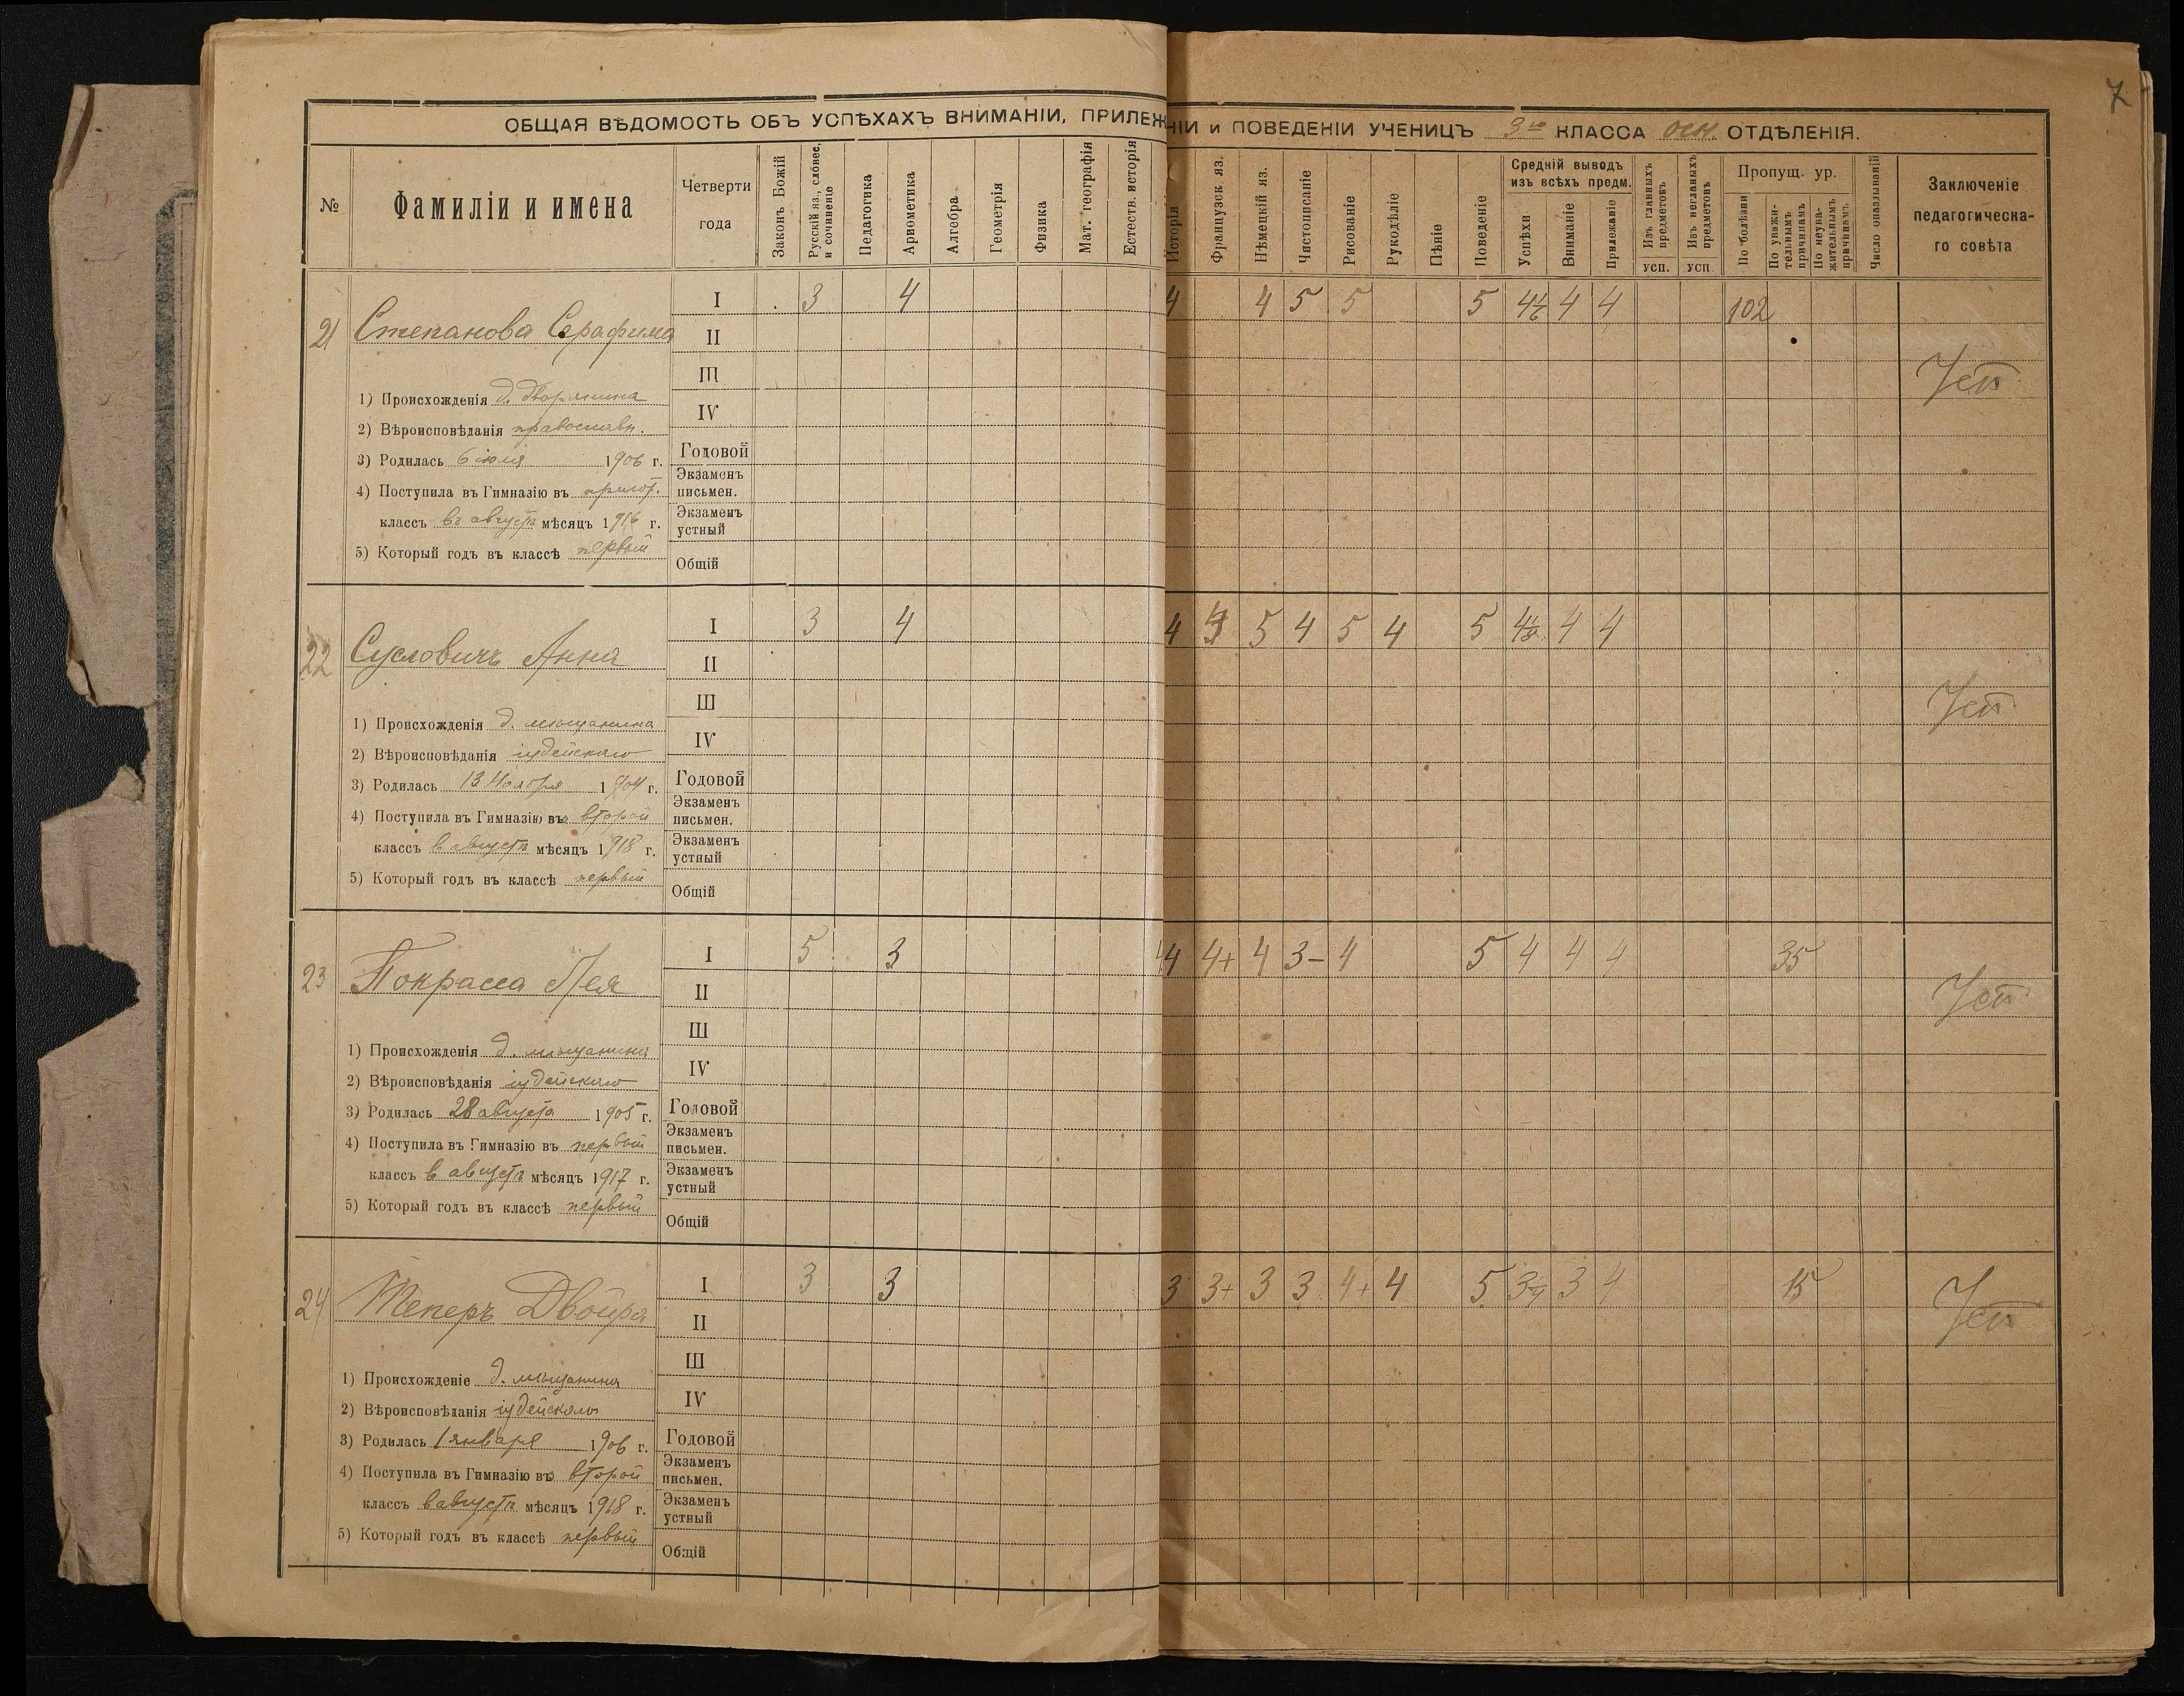 7
ОБЩАЯ ВѢДОМОСТЬ ОБЪ УСПѢХАХЪ ВНИМАНІИ, ПРИЛЕЖ НІИ и ПОВЕДЕНІИ УЧЕНИЦЪ 3го КЛАССА осн. ОТДѢЛЕНІЯ.
№ Фамиліи и имена Четверти года Законъ Божій Русскій яз., словес. и сочиненіе Педагогика Ариѳметика Алгебра Геометрія Физика Мат. географія Естеств. исторія Исторія Французск. яз. Нѣмецкій яз. Чистописаніе Рисованіе Рукодѣліе Пѣніе Поведеніе Средній выводъ изъ всѣхъ предм. Успѣхи Вниманіе Прилежаніе Изъ главныхъ предметовъ усп. Изъ неглавныхъ предметовъ усп. Пропущ. ур. По болѣзни По уважительнымъ причинамъ По неуважительнымъ причинамъ Число опаздываній Заключеніе педагогическаго совѣта
21 Степанова Серафима I 3 4 4 4 5 5 5 4 4 102
II
III Усп
1) Происхожденія д. дворянина
IV
2) Вѣроисповѣданія православн.
Годовой
3) Родилась 6 іюля 1906 г.
Экзаменъ письмен.
4) Поступила въ Гимназію въ пригот.
Экзаменъ устный
классъ въ августѣ мѣсяцъ 1916 г.
5) Который годъ въ классѣ первый
Общій
22 Сусловичъ Анна I 3 4 4 5 4 5 4 5 4 4
II
III Усп
1) Происхожденія д. мѣщанина
IV
2) Вѣроисповѣданія іудейскаго
Годовой
3) Родилась 13 Ноября 1904 г.
Экзаменъ письмен.
4) Поступила въ Гимназію въ второй
Экзаменъ устный
классъ в августѣ мѣсяцъ 1918 г.
5) Который годъ въ классѣ первый
Общій
23 Покрасса Лея I 5 3 4 4+ 4 3- 4 5 4 4 4 35
II Усп
III
1) Происхожденія д. мѣщанина
IV
2) Вѣроисповѣданія іудейскаго
Годовой
3) Родилась 28 августа 1905 г.
Экзаменъ письмен.
4) Поступила въ Гимназію въ первый
Экзаменъ устный
классъ в августѣ мѣсяцъ 1917 г.
5) Который годъ въ классѣ первый
Общій
24 Теперъ Двойра I 3 3 3 3+ 3 3 4+ 4 5 3 4 15
II Усп
III
1) Происхожденіе д. мѣщанина
IV
2) Вѣроисповѣданія іудейскаго
Годовой
3) Родилась 1 января 1906 г.
Экзаменъ письмен.
4) Поступила въ Гимназію въ второй
Экзаменъ устный
классъ в августѣ мѣсяцъ 1918 г.
5) Который годъ въ классѣ первый
Общій